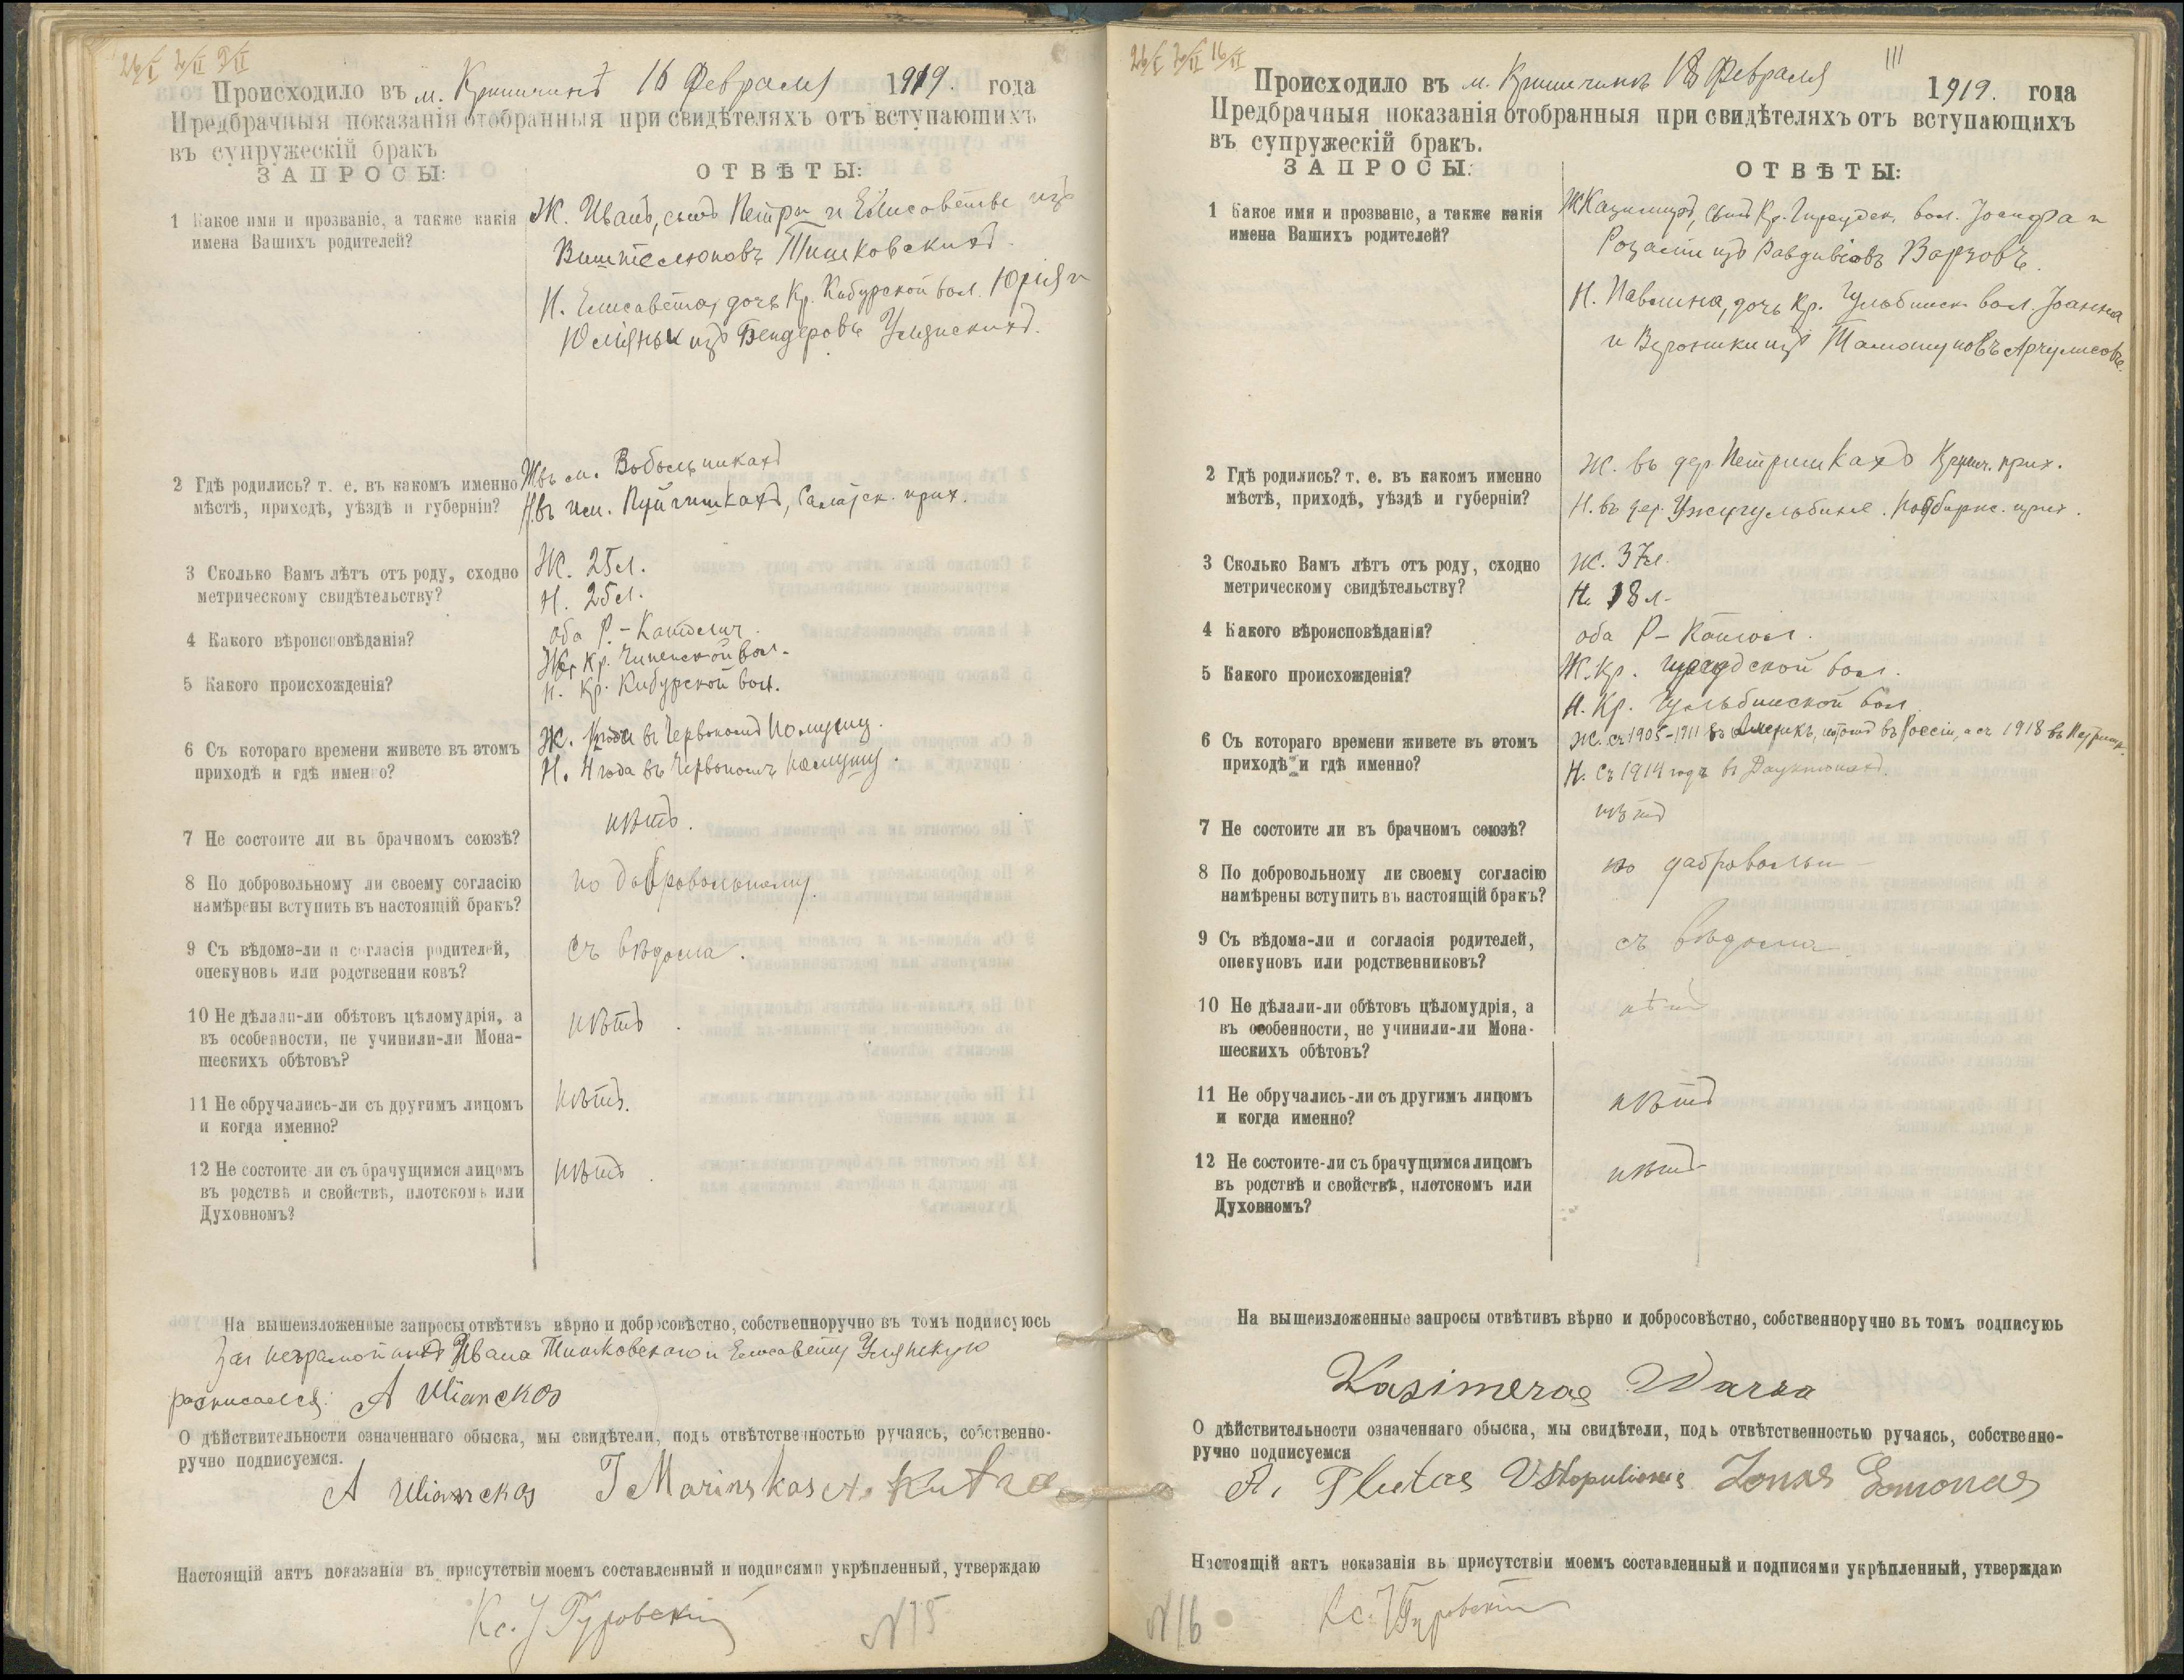 26/I 2/II 9/II
Происходило въ м. Криничинѣ 16 Февраля 1919. года
Предбрачныя показанія отобранныя при свидѣтеляхъ отъ вступающихъ
въ супружескій бракъ
ЗАПРОСЫ: ОТВѢТЫ:
1 Какое имя и прозваніе, а также какія
имена Вашихъ родителей?
Ж. Иванъ, сынъ Петра и Елисаветы изъ
Виштелюновъ Тишковскихъ.
Н. Елисавета, дочь Кр. Кибурской вол. Юрія и
Юліяны изъ Бендеровъ Улянскихъ.
2 Гдѣ родились? т. е. въ какомъ именно
мѣстѣ, приходѣ, уѣздѣ и губерніи?
Ж въ м. Вобольникахъ
Н. въ им. , Салатск. прих.
3 Сколько Вамъ лѣтъ отъ роду, сходно
метрическому свидѣтельству?
Ж. 25 л.
Н. 25 л.
4 Какого вѣроисповѣданія?
оба Р.-Католич.
5 Какого происхожденія?
Ж. Кр. вол.
Н. Кр. Кибурской вол.
6 Съ котораго времени живете въ этомъ
приходѣ и гдѣ имен о?
Ж. въ Червономъ
Н. 4 года въ Червономъ
7 Не состоите ли въ брачномъ союзѣ?
нѣтъ.
8 По добровольному ли своему согласію
намѣрены вступить въ настоящій бракъ?
по добровольному.
9 Съ вѣдома-ли и согласія родителей,
опекуновъ или родственни ковъ?
съ вѣдома.
10 Не дѣлали-ли обѣтовъ цѣломудрія, а
въ особенности, не учинили-ли Мона-
шескихъ обѣтовъ?
нѣтъ.
11 Не обручались-ли съ другимъ лицомъ
и когда именно?
нѣтъ.
12 Не состоите ли съ брачущимся лицомъ
въ родствѣ и свойствѣ, плотскомъ или
Духовномъ?
нѣтъ.
На вышеизложенные запросы отвѣтивъ вѣрно и добросовѣстно, собственноручно въ томъ подписуюсь
За неграмотныхъ Ивана Тишковскаго и Елисавету Улянскую
росписался: А Uliansкas
О дѣйствительности означеннаго обыска, мы свидѣтели, подъ отвѣтственностью ручаясь, собственно-
ручно подписуемся.
A Uliansкas J Marinskas A. Kutra
Настоящій актъ показанія въ присутствіи моемъ составленный и подписями укрѣпленный, утверждаю
Кс. У Гуровскій
№ 15
26/I 2/II 16/II
111
Происходило въ м. Криничинъ 18 Февраля 1919. года
Предбрачныя показанія отобранныя при свидѣтеляхъ отъ вступающихъ
въ супружескій бракъ.
ЗАПРОСЫ: ОТВѢТЫ:
1 Какое имя и прозваніе, а также какія
имена Вашихъ родителей?
Ж Казимиръ, сынъ Кр. вол. Іосифа и
Розаліи изъ Варзовъ.
Н. Павлина, дочь Кр. Гульбинск. вол. Іоанна
и Вероники изъ
2 Гдѣ родились? т. е. въ какомъ именно
мѣстѣ, приходѣ, уѣздѣ и губерніи?
Ж. въ дер. Петришкахъ Крин. прих.
Н. въ дер. Ужугульбине. прих.
3 Сколько Вамъ лѣтъ отъ роду, сходно
метрическому свидѣтельству?
Ж. 37 л.
Н. 18 л.
4 Какого вѣроисповѣданія?
оба Р-Катол.
5 Какого происхожденія?
Ж. Кр. вол.
Н. Кр. Гульбинской вол.
6 Съ котораго времени живете въ этомъ
приходѣ и гдѣ именно?
Ж. съ 1905-1911 въ Америкѣ, потомъ въ Россіи, а съ 1918 въ Петришк.
Н. Съ 1914 года въ
7 Не состоите ли въ брачномъ союзѣ?
нѣтъ
8 По добровольному ли своему согласію
намѣрены вступить въ настоящій бракъ?
по добровольн
9 Съ вѣдома-ли и согласія родителей,
опекуновъ или родственниковъ?
съ вѣдома
10 Не дѣлали-ли обѣтовъ цѣломудрія, а
въ особенности, не учинили-ли Мона-
шескихъ обѣтовъ?
нѣтъ
11 Не обручались-ли съ другимъ лицомъ
и когда именно?
нѣтъ
12 Не состоите-ли съ брачущимся лицомъ
въ родствѣ и свойствѣ, плотскомъ или
Духовномъ?
нѣтъ
На вышеизложенные запросы отвѣтивъ вѣрно и добросовѣстно, собственноручно въ томъ подписуюь
Kasimeras Warza
О дѣйствительности означеннаго обыска, мы свидѣтели, подъ отвѣтственностью ручаясь, собственно-
ручно подписуемся
A. Plutas V Stapulionis Jonas Simonas
Настоящій актъ показанія въ присутствіи моемъ составленный и подписями укрѣпленный, утверждаю
Кс. У Гуровскій
№ 16